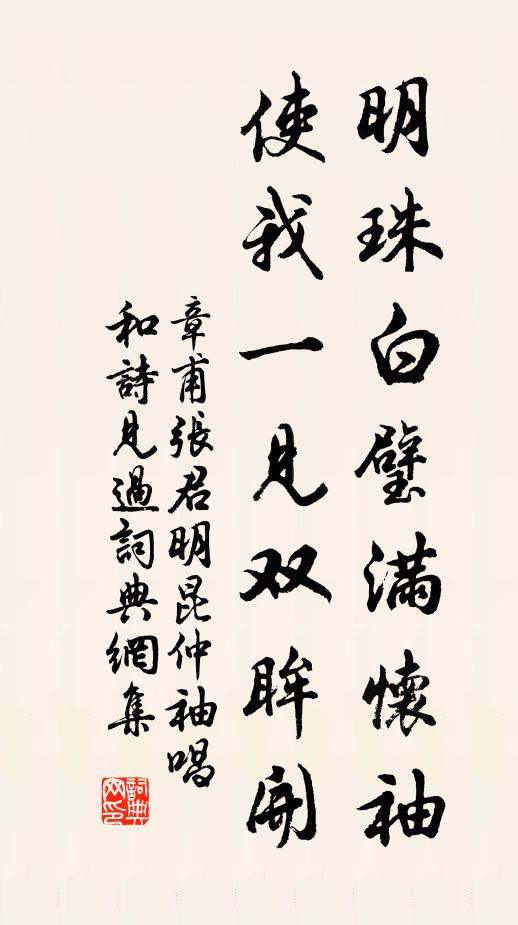 明珠白璧滿懷袖
使我一見双眸開
章甫張君明昆仲袖唱
和詩見過詞典網集
詞典网印